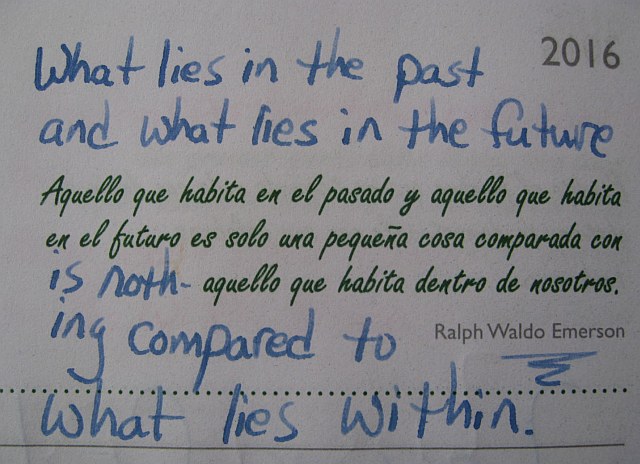 What lies in the past
2016
and what lies in the future
Aquello que habita en el pasado y aquello que habita
en el futuro es solo una pequeña cosa comparada con
aquello que habita dentro de nosotros.
is noth-
ing compared to
Ralph Waldo Emerson
what lies within.